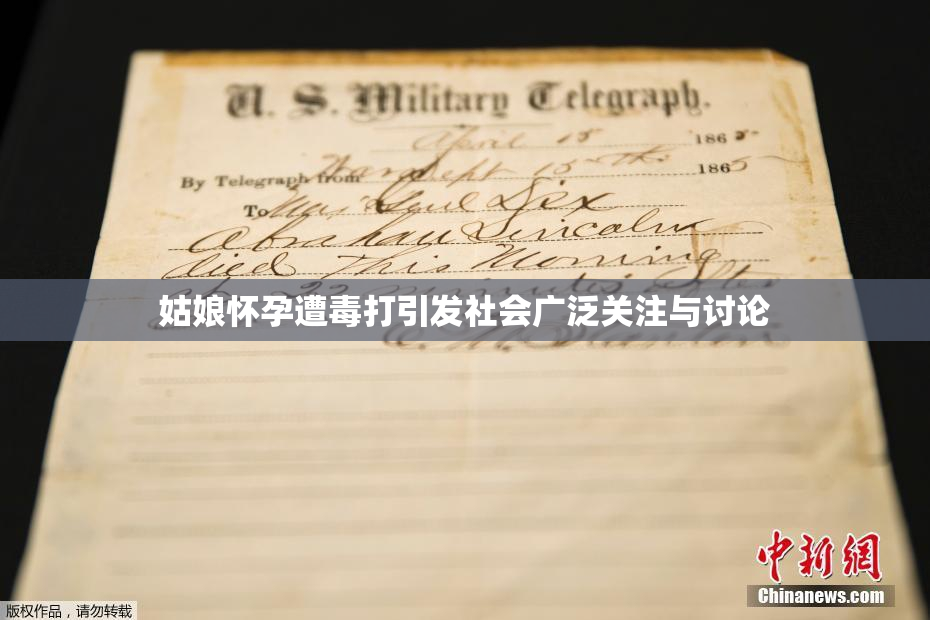 U. S. Military Telegraph.
April 15 1865
By Telegraph from War Dept 15th 1865
To Maj Genl Dix
Abraham Lincoln
died This Morning
at 22 minutes after
姑娘怀孕遭毒打引发社会广泛关注与讨论
中新网
Chinanews.com
版权作品，请勿转载